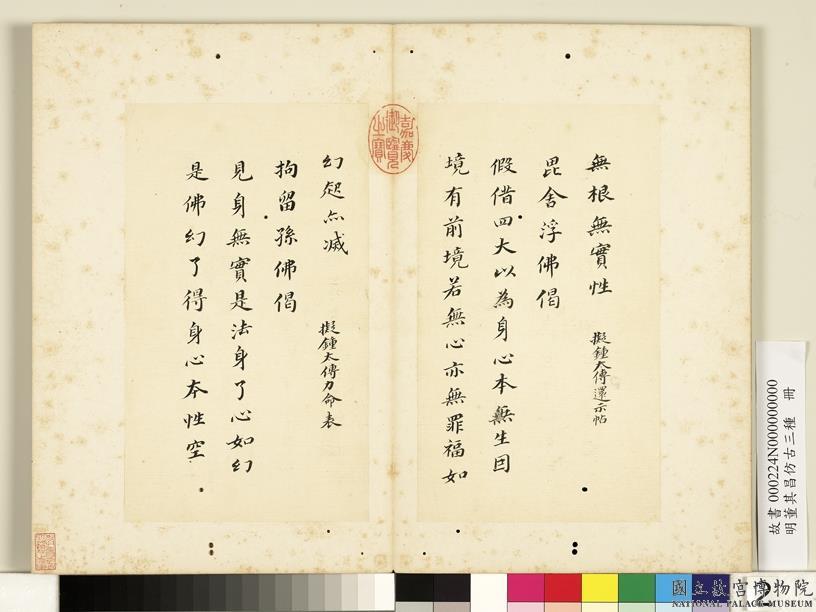 無根無實性
擬鍾太傅還示帖
毘舍浮佛偈
假借四大以為身心本無生因
境有前境若無心亦無罪福如
幻起亦滅
擬鍾太傅力命表
拘留孫佛偈
見身無實是法身了心如幻
是佛幻了得身心本性空
嘉慶
御覽
之寶
故書 000224N000000000
明董其昌仿古三種 冊
國立故宮博物院
NATIONAL PALACE MUSEUM